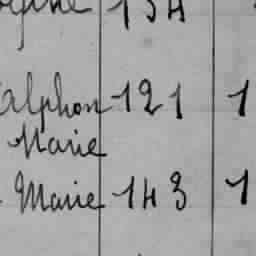 134
Alphon 121 1
Marie
Marie 143 1